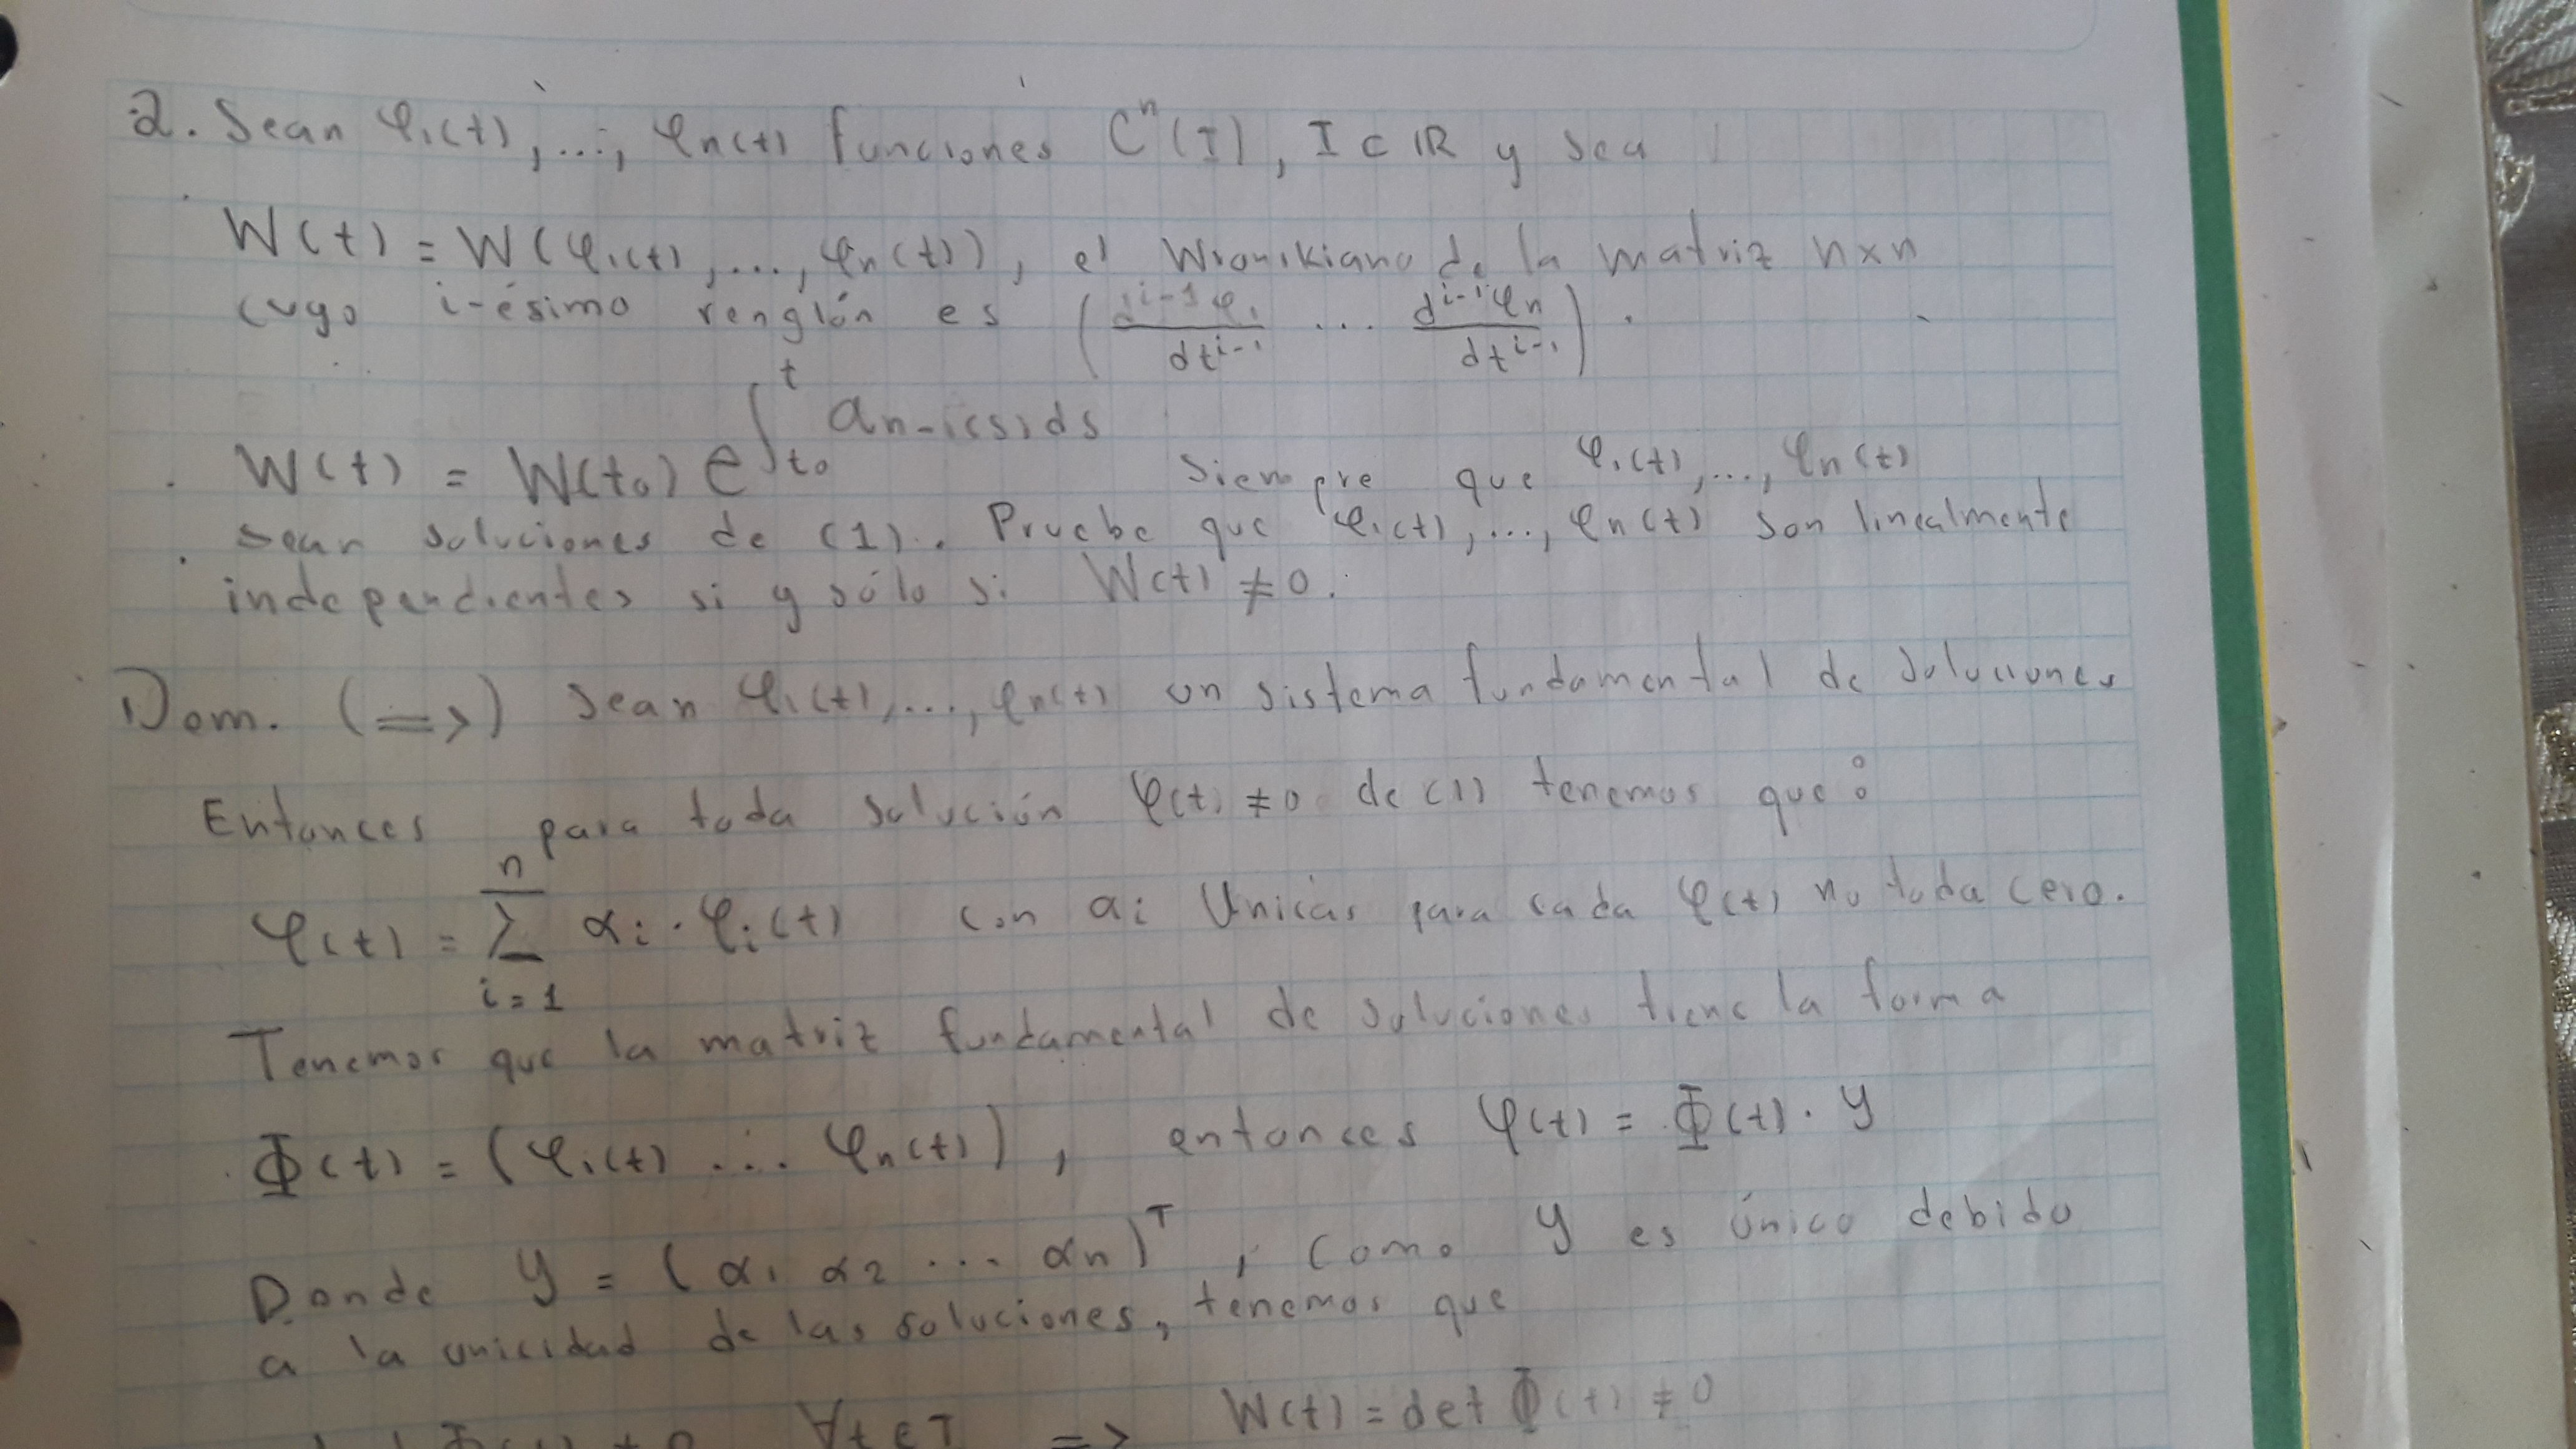 2. Sean φ₁(t), ..., φn(t) funciones Cⁿ(I), I ⊂ ℝ y sea
W(t) = W(φ₁(t), ..., φn(t)), el Wronskiano de la matriz n×n
cuyo i-ésimo renglón es (d^{i-1}φ₁/dt^{i-1} ... d^{i-1}φn/dt^{i-1}).
W(t) = W(t₀) e^{∫_{t₀}^{t} a_{n-1}(s)ds} siempre que φ₁(t), ..., φn(t)
sean soluciones de (1). Pruebe que φ₁(t), ..., φn(t) son linealmente
independientes si y sólo si W(t) ≠ 0.
Dem. (=>) Sean φ₁(t), ..., φn(t) un sistema fundamental de soluciones
Entonces para toda solución φ(t) ≠ 0 de (1) tenemos que:
φ(t) = Σ_{i=1}^{n} αi · φi(t) con αi únicas para cada φ(t) no toda cero.
Tenemos que la matriz fundamental de soluciones tiene la forma
Φ(t) = (φ₁(t) ... φn(t)), entonces φ(t) = Φ(t) · y
Donde y = (α₁ α₂ ... αn)^T, como y es único debido
a la unicidad de las soluciones, tenemos que
∀t∈I => W(t) = det Φ(t) ≠ 0